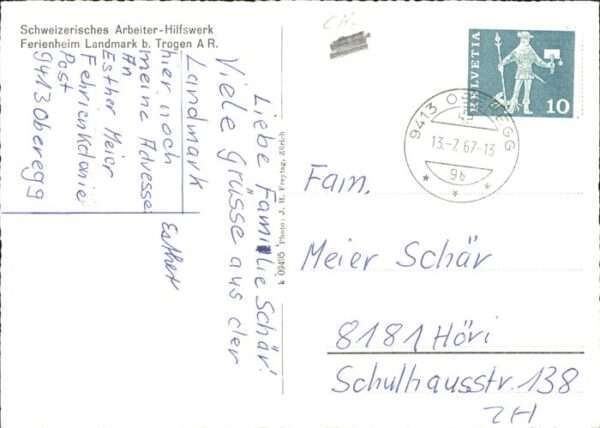 Schweizerisches Arbeiter-Hilfswerk
Ferienheim Landmark b. Trogen A R.
Liebe Familie Schär!
Viele Grüsse aus der
Landmark
hier noch
meine Adresse
An
Esther Meier
Fehrienkolonie
Post
9413 Oberegg
Esther
k 09405 Photo: J. H. Freytag, Zürich
HELVETIA
10
9413 OBEREGG
13.-7.67-13
9b
Fam.
Meier Schär
8181 Höri
Schulhausstr. 138
ZH